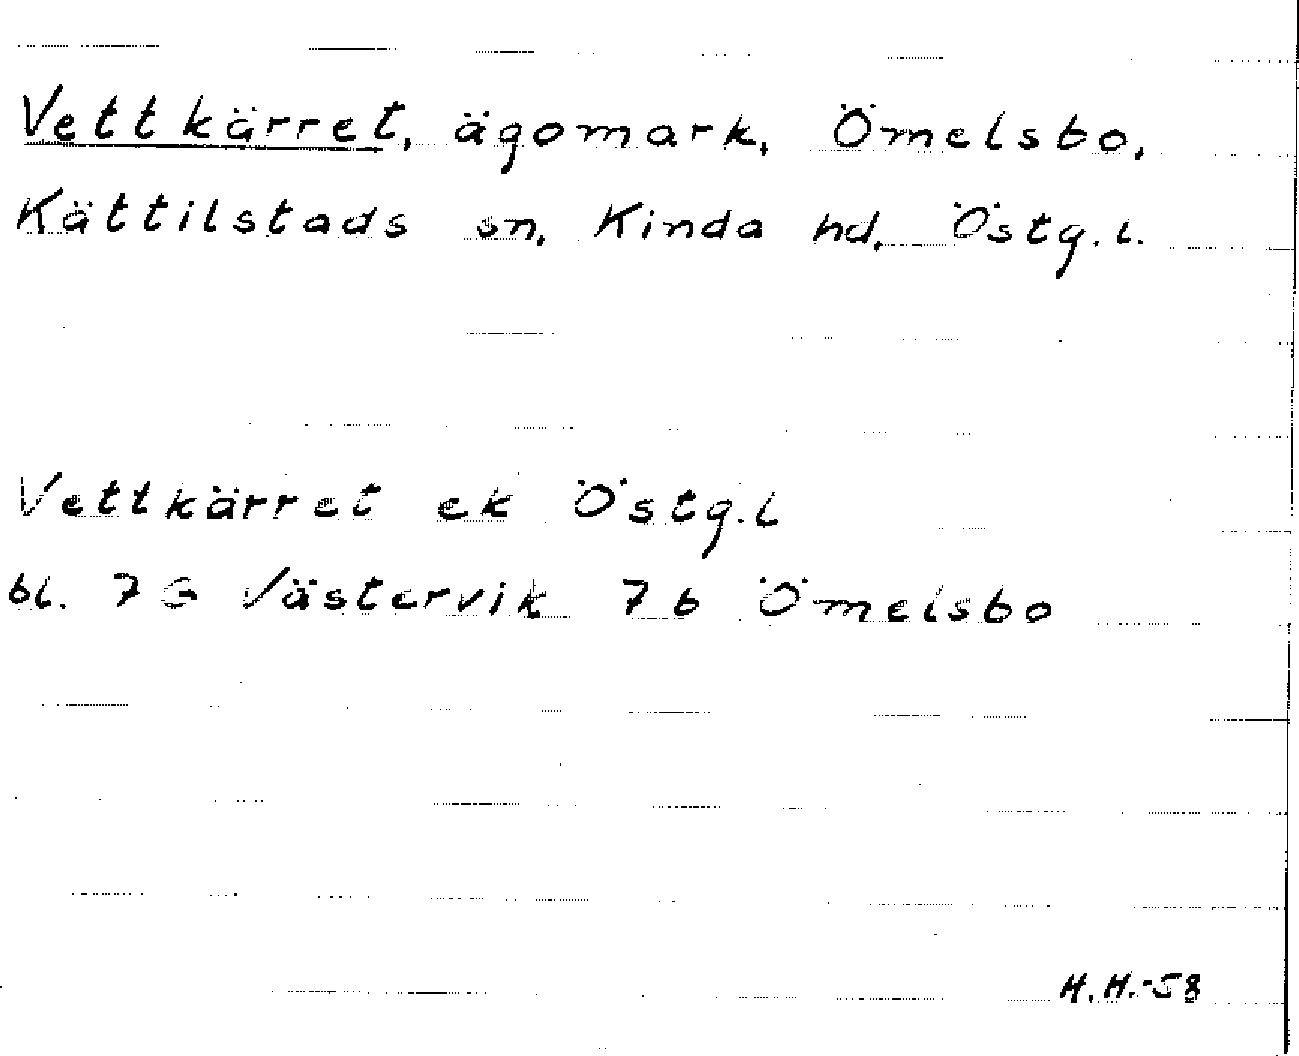 Vettkärret, ägomark, Ömelsbo,
Kättilstads sn, Kinda hd, Östg.l.
Vettkärret ek Östg.l
bl. 7 G Västervik 7b Ömelsbo
H.H.-58